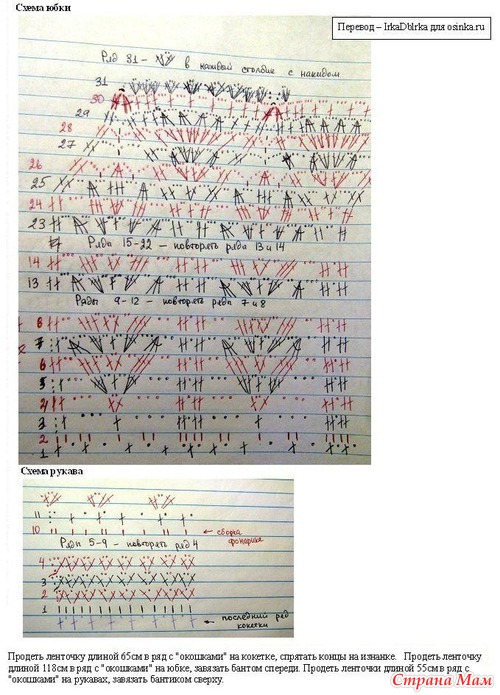 Схема юбки
Перевод – IrkaDbIrka для osinka.ru
Ряд 31 – в каждый столбик с накидом
31
30
29
28
27
26
25
24
23
Ряда 15-22 – повторять ряда 13 и 14
14
13
Ряды 9-12 – повторять ряда 7 и 8
8
7
6
5
4
3
2
1
Схема рукава
11
10
сборка
фонарика
Ряды 5-9 – повторять ряд 4
4
3
2
1
последний ряд
кокетки
Продеть ленточку длиной 65см в ряд с "окошками" на кокетке, спрятать концы на изнанке. Продеть ленточку
длиной 118см в ряд с "окошками" на юбке, завязать бантом спереди. Продеть ленточки длиной 55см в ряд с
"окошками" на рукавах, завязать бантиком сверху.
Страна Мам